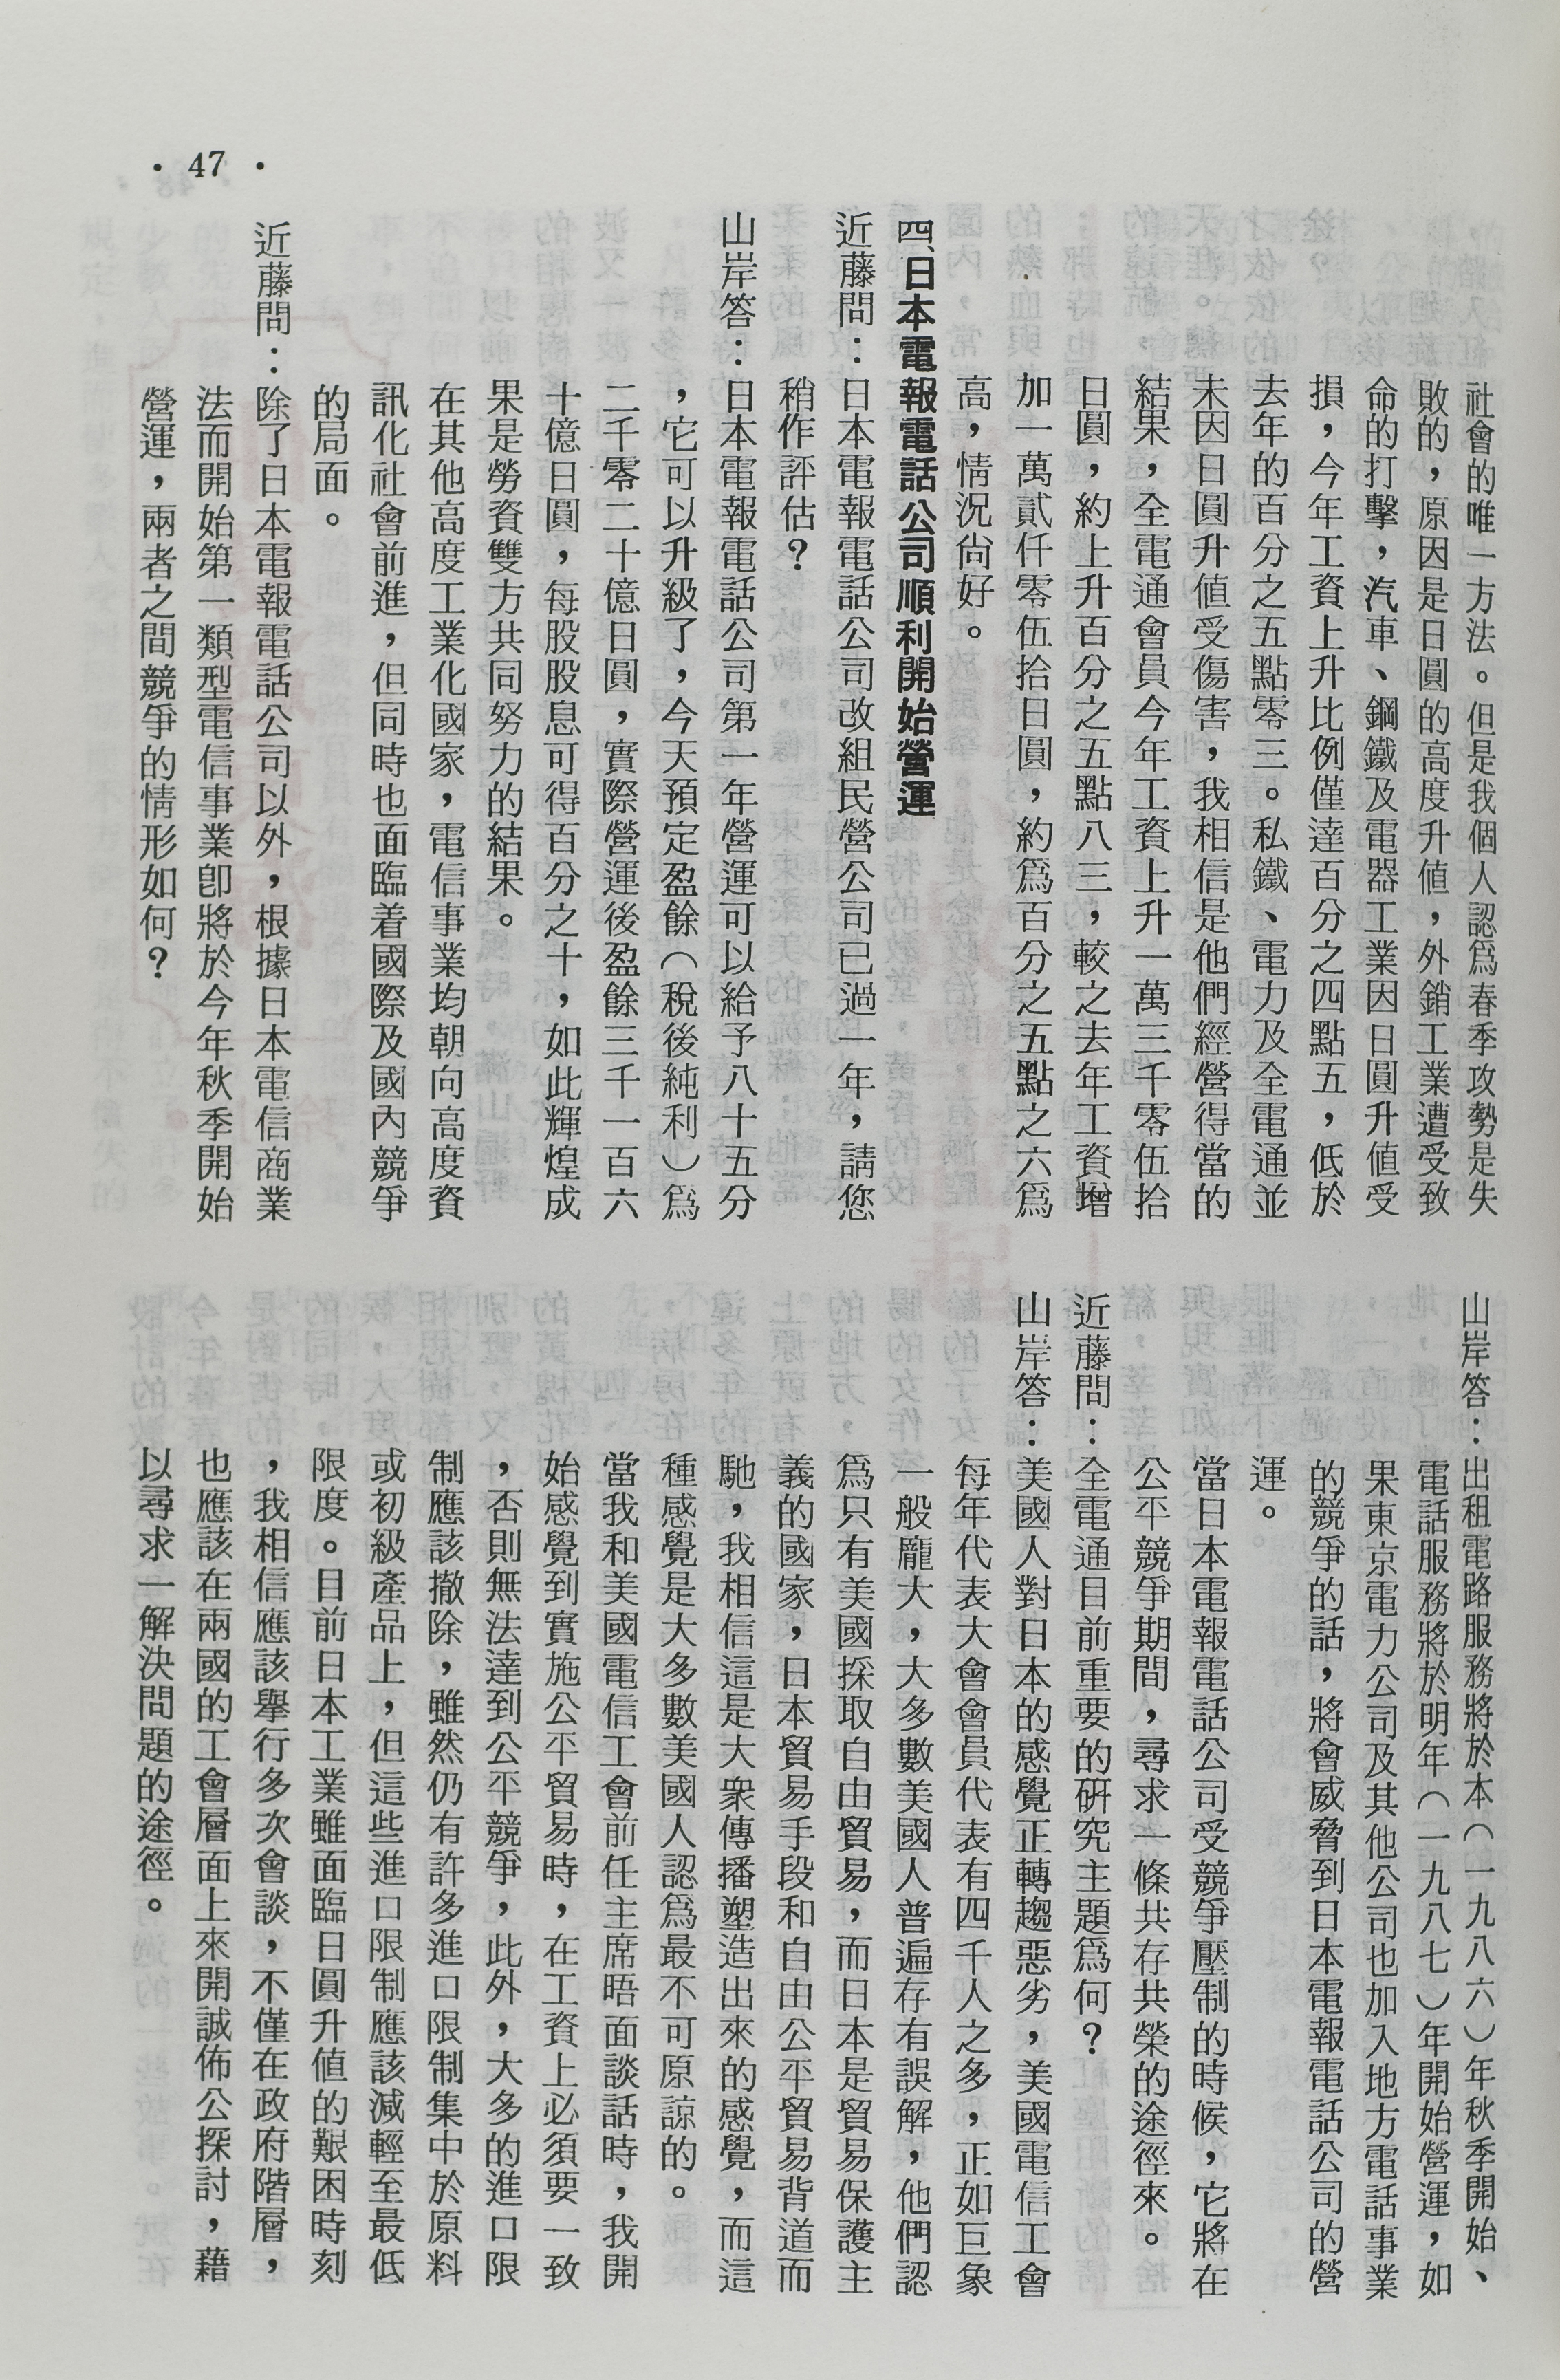 社會的唯一方法。但是我個人認爲春季攻勢是失
敗的，原因是日圓的高度升値，外銷工業遭受致
命的打擊，汽車、鋼鐵及電器工業因日圓升値受
損，今年工資上升比例僅達百分之四點五，低於
去年的百分之五點零三。私鐵、電力及全電通並
未因日圓升値受傷害，我相信是他們經營得當的
結果，全電通會員今年工資上升一萬三千零伍拾
日圓，約上升百分之五點八三，較之去年工資增
加一萬貳仟零伍拾日圓，約爲百分之五點之六爲
高，情況尙好。
四、日本電報電話公司順利開始營運
近藤問：日本電報電話公司改組民營公司已過一年，請您
稍作評估？
山岸答：日本電報電話公司第一年營運可以給予八十五分
，它可以升級了，今天預定盈餘（稅後純利）爲
二千零二十億日圓，實際營運後盈餘三千一百六
十億日圓，每股股息可得百分之十，如此輝煌成
果是勞資雙方共同努力的結果。
在其他高度工業化國家，電信事業均朝向高度資
訊化社會前進，但同時也面臨着國際及國內競爭
的局面。
近藤問：除了日本電報電話公司以外，根據日本電信商業
法而開始第一類型電信事業卽將於今年秋季開始
營運，兩者之間競爭的情形如何？
山岸答：出租電路服務將於本（一九八六）年秋季開始、
電話服務將於明年（一九八七）年開始營運，如
果東京電力公司及其他公司也加入地方電話事業
的競爭的話，將會威脅到日本電報電話公司的營
運。
當日本電報電話公司受競爭壓制的時候，它將在
公平競爭期間，尋求一條共存共榮的途徑來。
近藤問：全電通目前重要的硏究主題爲何？
山岸答：美國人對日本的感覺正轉趨惡劣，美國電信工會
每年代表大會會員代表有四千人之多，正如巨象
一般龐大，大多數美國人普遍存有誤解，他們認
爲只有美國採取自由貿易，而日本是貿易保護主
義的國家，日本貿易手段和自由公平貿易背道而
馳，我相信這是大衆傳播塑造出來的感覺，而這
種感覺是大多數美國人認爲最不可原諒的。
當我和美國電信工會前任主席晤面談話時，我開
始感覺到實施公平貿易時，在工資上必須要一致
，否則無法達到公平競爭，此外，大多的進口限
制應該撤除，雖然仍有許多進口限制集中於原料
或初級產品上，但這些進口限制應該減輕至最低
限度。目前日本工業雖面臨日圓升値的艱困時刻
，我相信應該舉行多次會談，不僅在政府階層，
也應該在兩國的工會層面上來開誠佈公探討，藉
以尋求一解決問題的途徑。
・47・